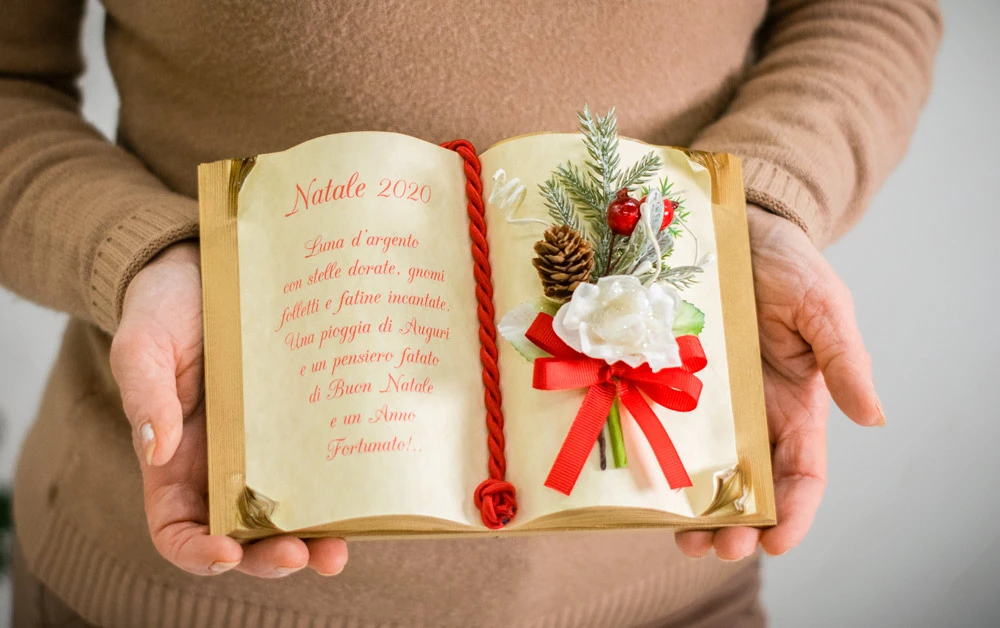 Natale 2020
Luna d'argento
con stelle dorate, gnomi
folletti e fatine incantate.
Una pioggia di Auguri
e un pensiero fatato
di Buon Natale
e un Anno
Fortunato!..